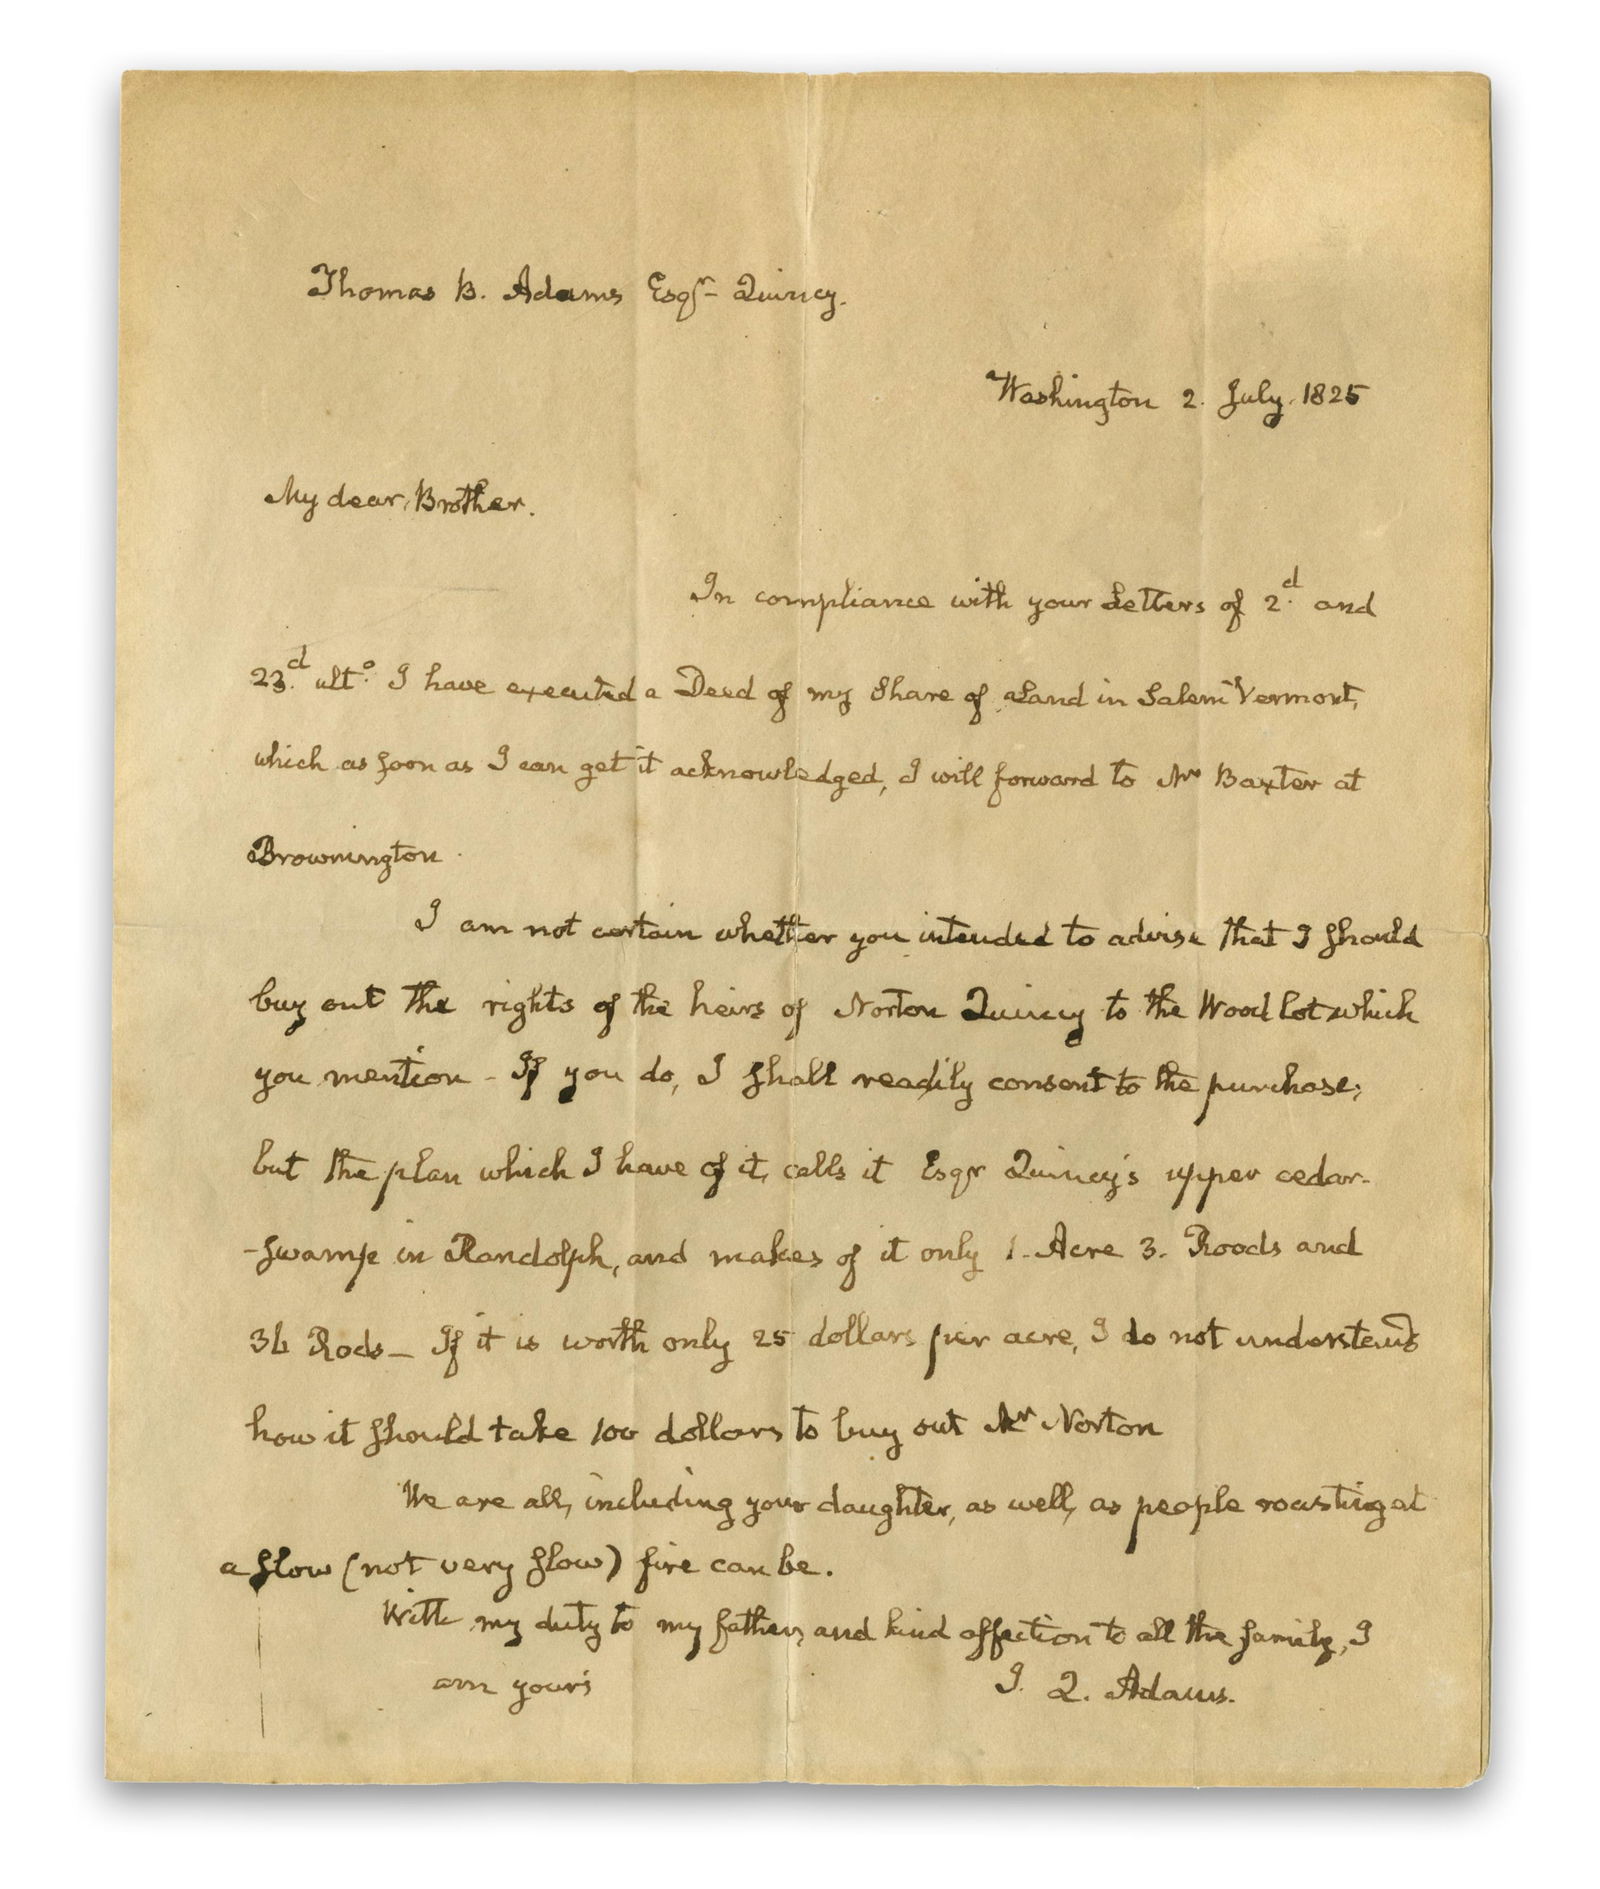 Thomas B. Adams Esqr- Quincy.
Washington 2. July. 1825
My dear Brother.
In compliance with your Letters of 2.d and
23.d ult.o I have executed a Deed of my Share of Land in Salem Vermont,
which as soon as I can get it acknowledged, I will forward to Mr Baxter at
Brownington.
I am not certain whether you intended to advise that I should
buy out the rights of the heirs of Norton Quincy to the Wood lot which
you mention - If you do, I shall readily consent to the purchase;
but the plan which I have of it, calls it Esqr Quincy's upper cedar-
-swamp in Randolph, and makes of it only 1. Acre 3. Roods and
36 Rods_ If it is worth only 25 dollars per acre, I do not understand
how it should take 100 dollars to buy out Mr Norton
We are all, including your daughter, as well, as people roasting at
a slow (not very slow) fire can be.
With my duty to my father, and kind affection to all the family, I
am yours
J. Q. Adams.